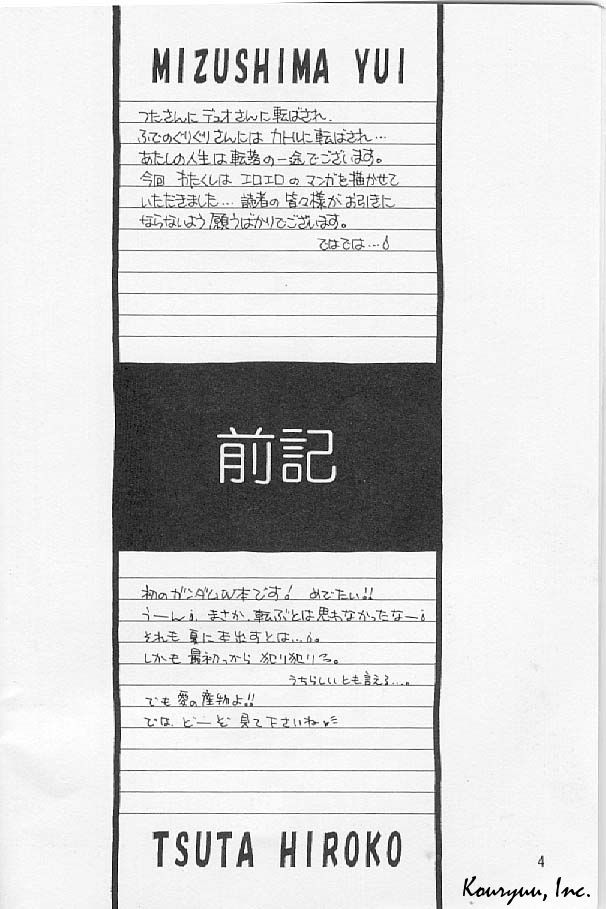 MIZUSHIMA YUI
つたさんに デュオさんに転ばされ、
ふでのぐりぐりさんには カトルに転ばされ…
あたしの人生は転落の一途でございます。
今回 わたくしは エロエロの マンガを描かせて
いただきました… 読者の 皆々様が お引きに
ならないよう 願うばかりでございます。
ではでは…
前記
初のガンダムW本です! めでたい!!
うーん、まさか、転ぶとは思わなかったなー
それも 夏に本出すとは…。
しかも 最初っから 犯り犯りる。
うちらしいとも言える…。
でも 愛の産物よ!!
では、どーぞ 見て下さいね
TSUTA HIROKO
4
Kouryuu, Inc.